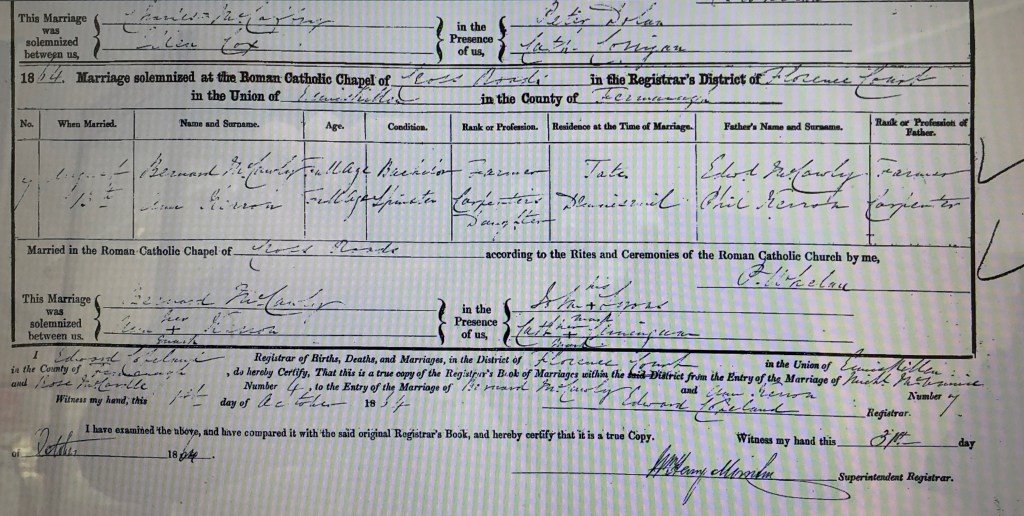 This Marriage was solemnized between us, Charles McCaffry Ellen Cox in the Presence of us, Peter Dolan Cath Corrigan
1864. Marriage solemnized at the Roman Catholic Chapel of Cross Roads in the Registrar's District of Florence Court
in the Union of Enniskillen in the County of Fermanagh
No. When Married. Name and Surname. Age. Condition. Rank or Profession. Residence at the Time of Marriage. Father's Name and Surname. Rank or Profession of Father.
7 August Bernard McCawley Full age Bachelor Farmer Tate Edwd McCawley Farmer
Ann Kerron Full Age Spinster Carpenter's Daughter Phil Kerron Carpenter
Married in the Roman Catholic Chapel of Cross Roads according to the Rites and Ceremonies of the Roman Catholic Church by me,
P. Whelan
This Marriage was solemnized between us, Bernard McCawley Ann her + mark Kerron in the Presence of us, John his + mark Cath her + mark
I Edward Copeland Registrar of Births, Deaths, and Marriages, in the District of Florence Court in the Union of Enniskillen
in the County of Fermanagh, do hereby Certify, That this is a true copy of the Registrar's Book of Marriages within the said District from the Entry of the Marriage of Michl
and Rose Number 4, to the Entry of the Marriage of Bernard McCawley and Ann Kerron Number 7
Witness my hand, this 1st day of October 1864 Edward Copeland Registrar.
I have examined the above, and have compared it with the said original Registrar's Book, and hereby certify that it is a true Copy. Witness my hand this day
of October 1864.
Superintendent Registrar.